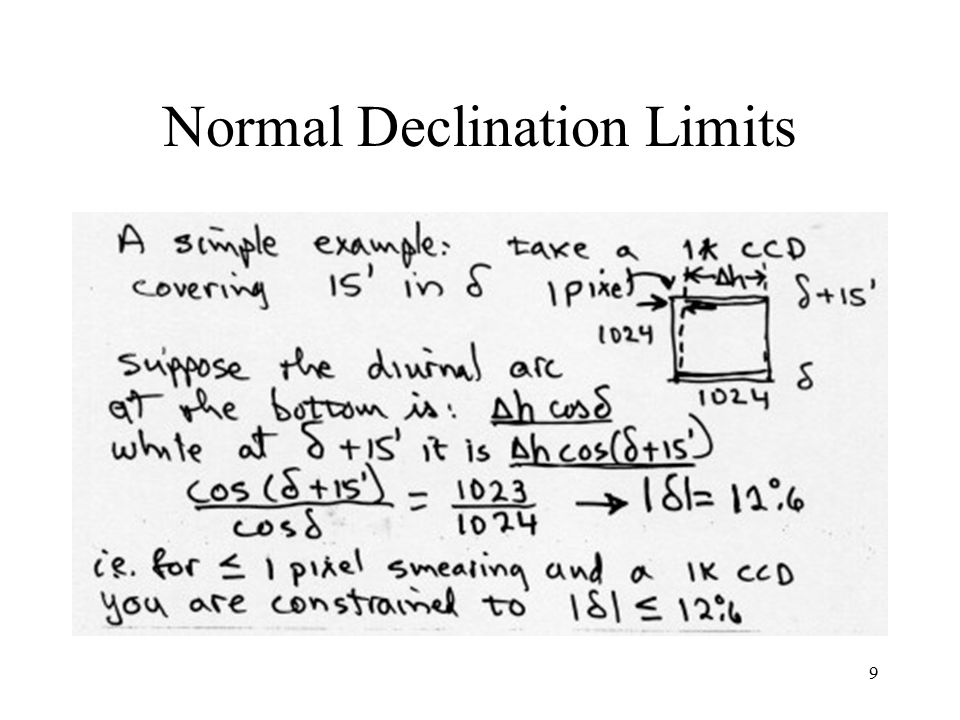 Normal Declination Limits
A simple example: take a 1K CCD
covering 15' in δ
1 pixel
Δh
δ+15'
1024
δ
1024
Suppose the diurnal arc
at the bottom is: Δh cosδ
while at δ+15' it is Δh cos(δ+15')
cos(δ+15')/cosδ = 1023/1024 → |δ| = 12°.6
i.e. for ≤ 1 pixel smearing and a 1K CCD
you are constrained to |δ| ≤ 12°.6
9